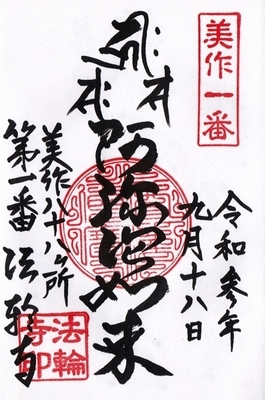 美作一番
令和参年
九月十八日
奉
阿弥陀如来
本
美作八十八ヶ所
第一番 法輪寺
法輪
寺印